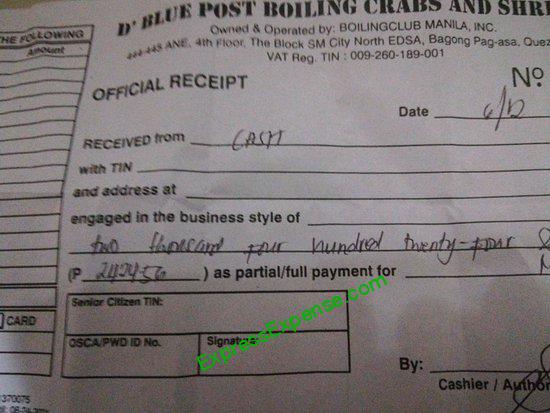 D' BLUE POST BOILING CRABS AND SHRI
Owned & Operated by: BOILINGCLUB MANILA, INC.
444-445 ANE, 4th Floor, The Block SM City North EDSA, Bagong Pag-asa, Quez
VAT Reg. TIN : 009-260-189-001
THE FOLLOWING
Amount
OFFICIAL RECEIPT
Nº
Date 6/12
RECEIVED from CASH
with TIN
and address at
engaged in the business style of
two thousand four hundred twenty-four &
(P 2424.56 ) as partial/full payment for
Senior Citizen TIN:
OSCA/PWD ID No.
Signature
CARD
ExpressExpense.com
By:
Cashier / Author
1370075